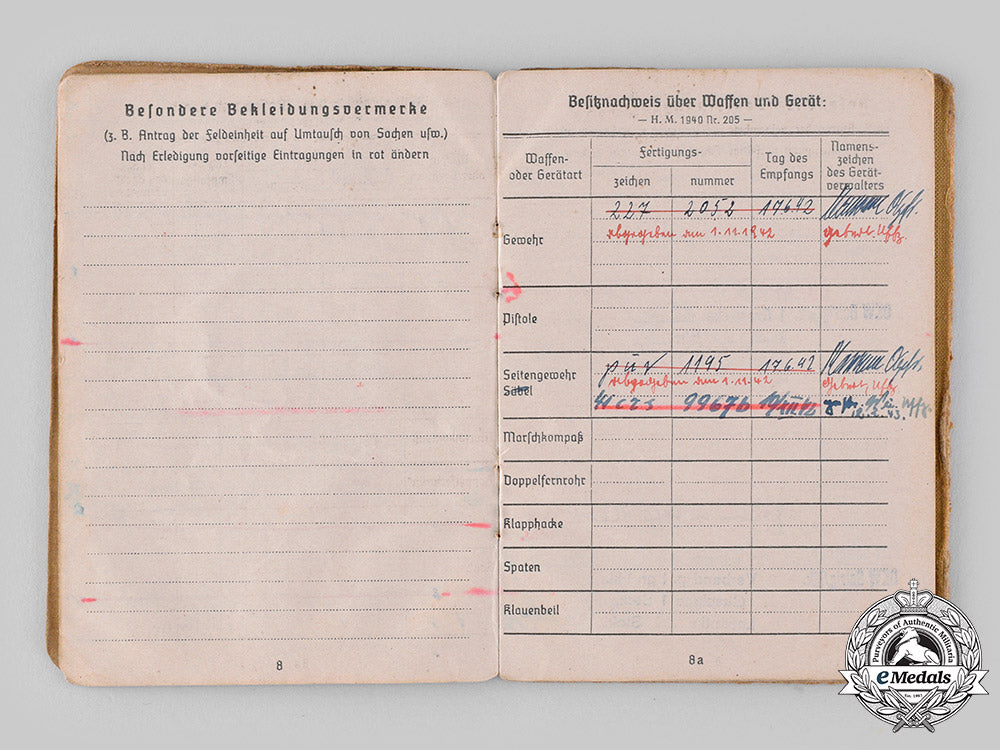 Besondere Bekleidungsvermerke
(z. B. Antrag der Feldeinheit auf Umtausch von Sachen usw.)
Nach Erledigung vorseitige Eintragungen in rot ändern
8
Besitznachweis über Waffen und Gerät:
— H. M. 1940 Nr. 205 —
Waffen- oder Gerätart
Fertigungs-
zeichen
nummer
Tag des Empfangs
Namens-zeichen des Gerät-verwalters
227 2052 17.6.42
Gewehr
abgegeben am 1.11.1942 Uffz.
Pistole
1195 17.6.42
Seitengewehr
abgegeben am 1.11.42 Uffz.
Säbel
Marschkompaß
Doppelfernrohr
Klapphacke
Spaten
Klauenbeil
8a
Purveyors of Authentic Militaria
eMedals